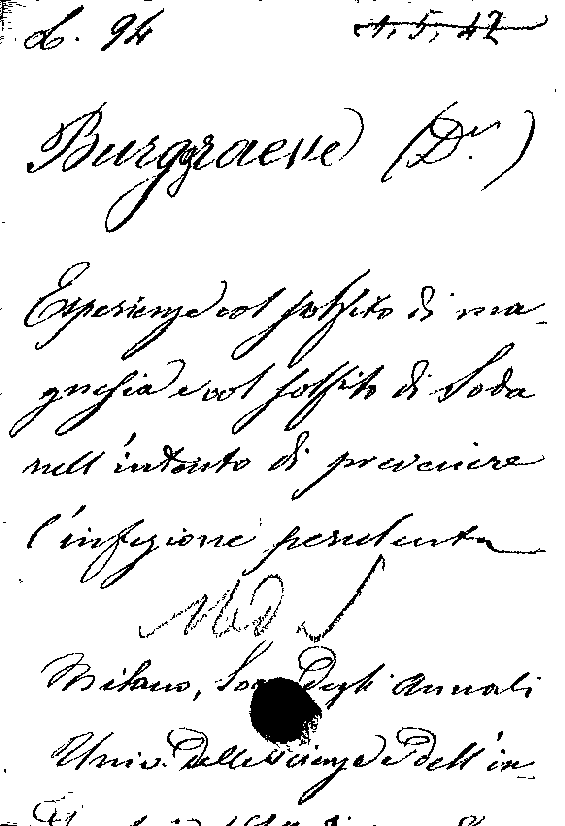 L. 94 A. 5. 42
Burggraeve (Dr.)
Esperienze col solfito di ma-
gnesia e col solfito di Soda
nell'intento di prevenire
l'infezione perulenta
Med
Milano, Soc. degli Annali
Univ. delle scienze e dell'in-